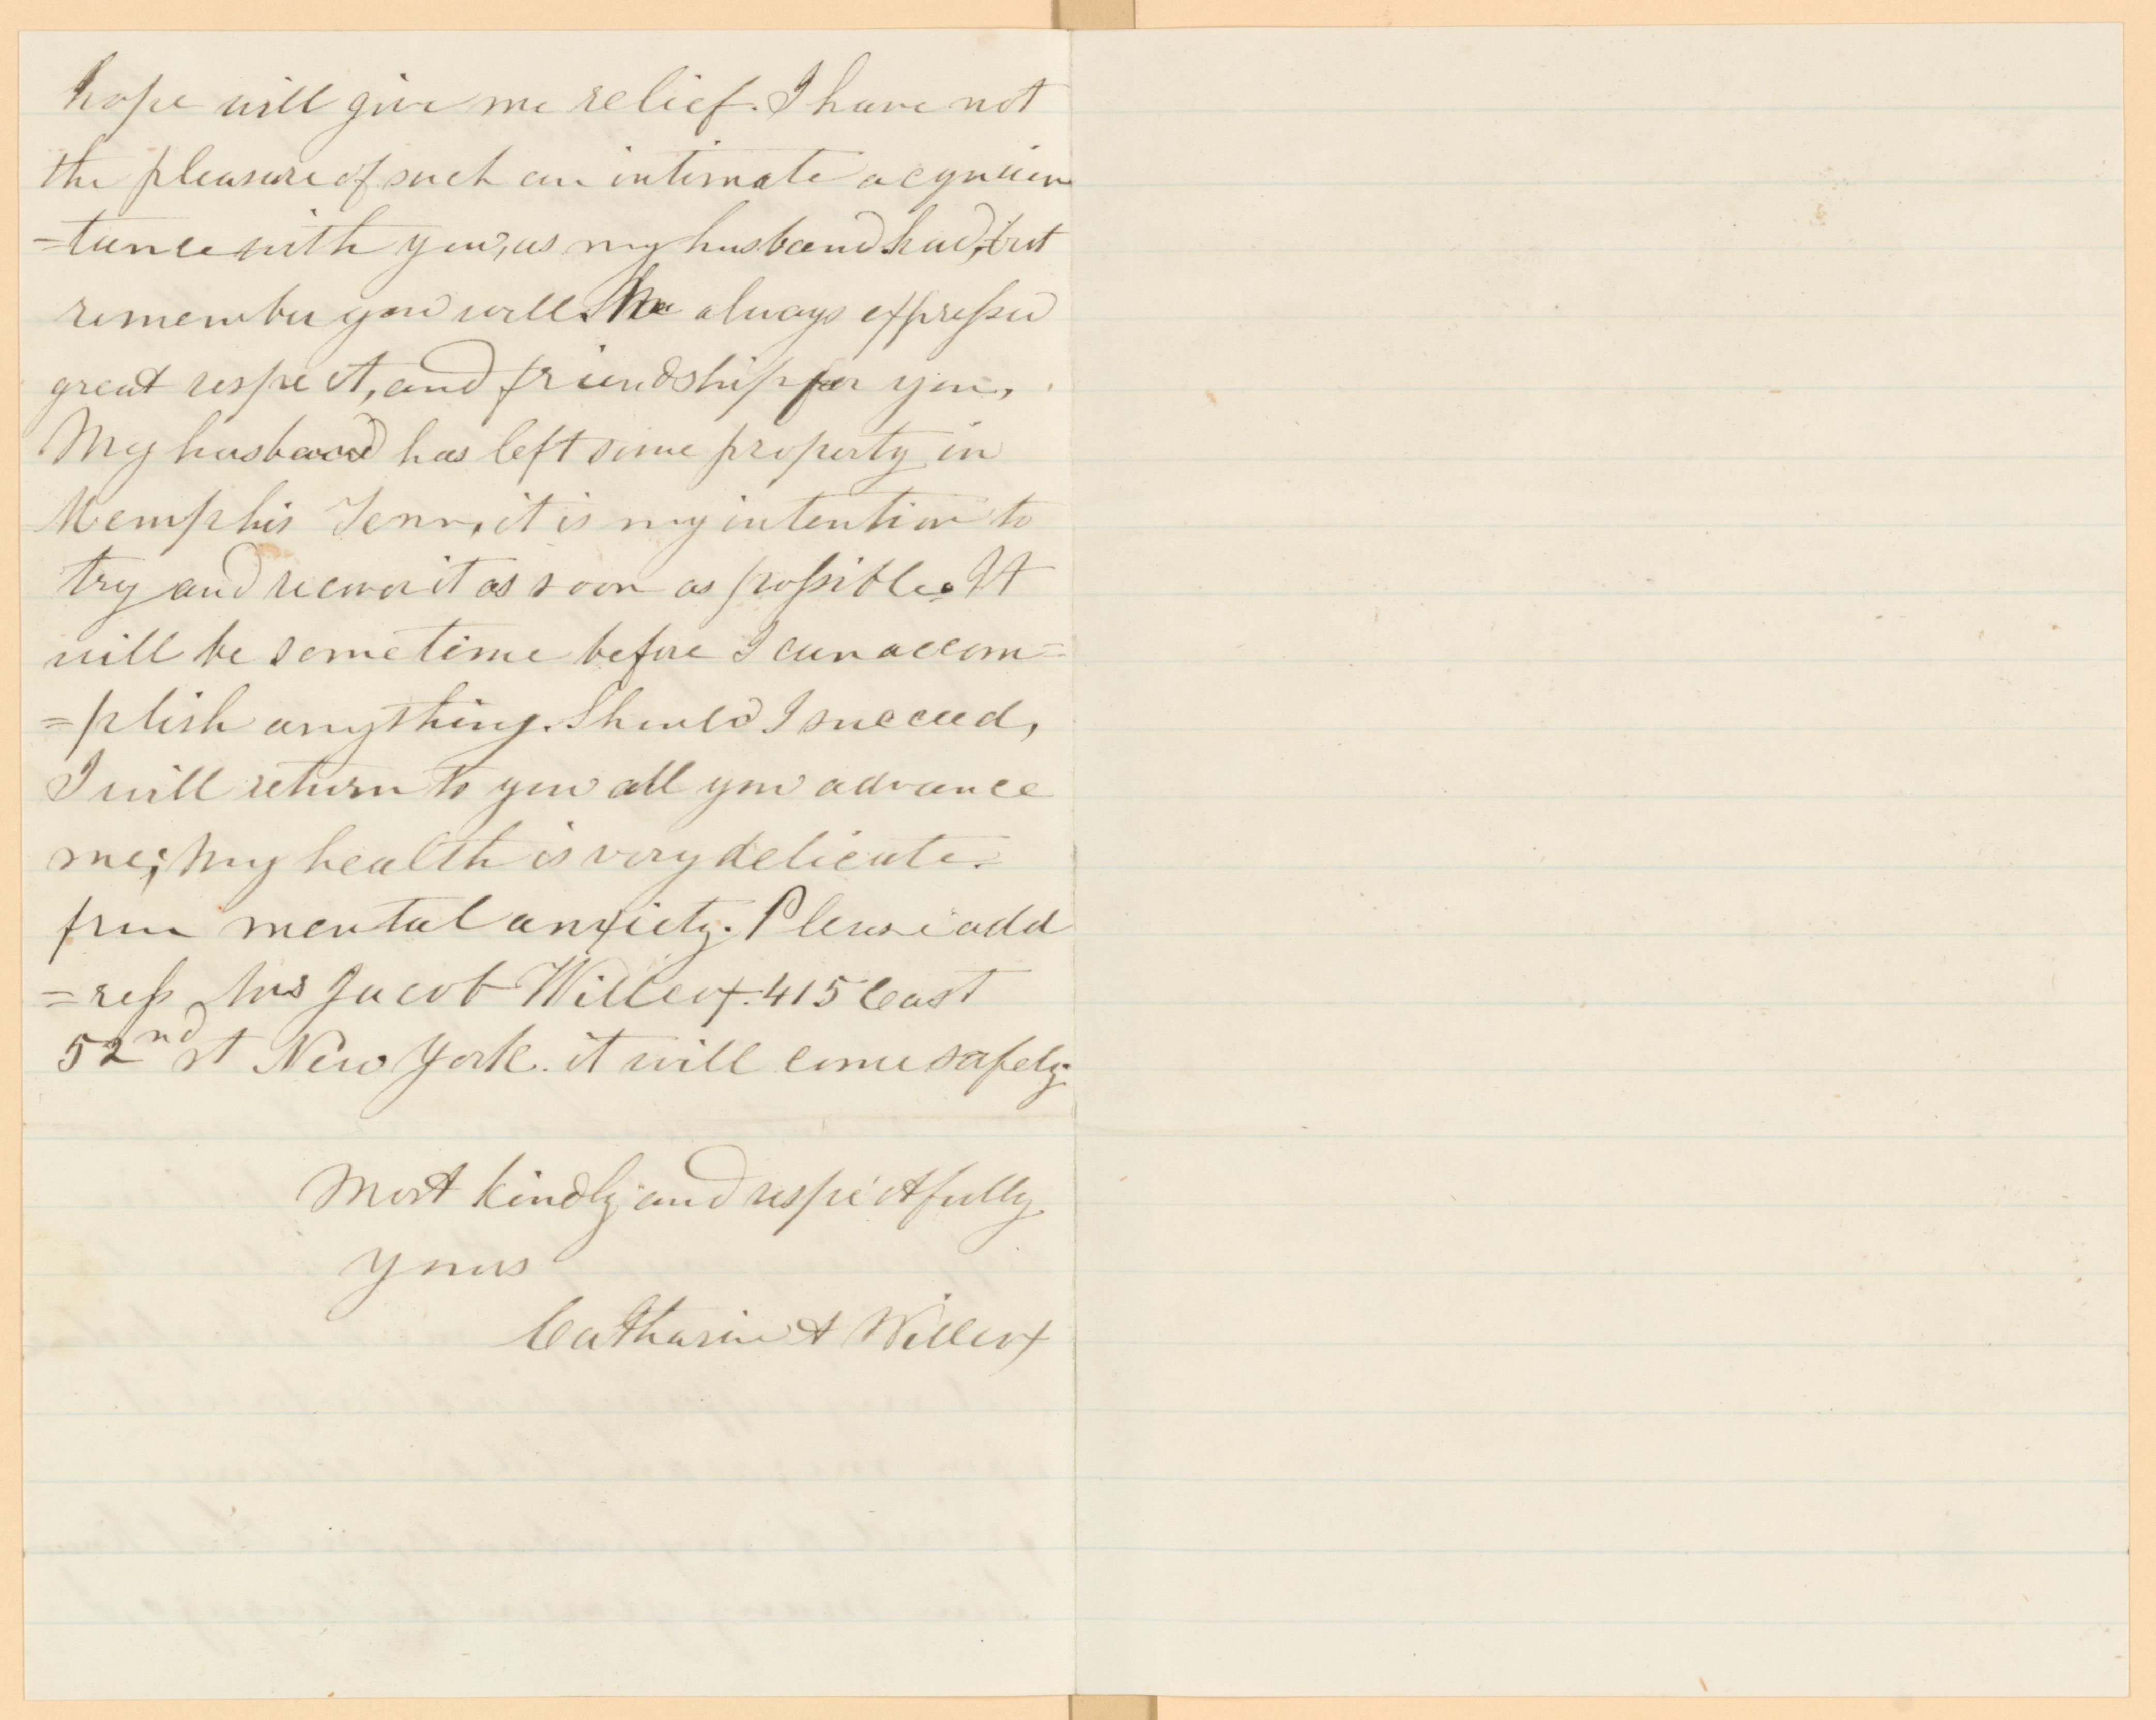 hope will give me relief. I have not
the pleasure of such an intimate acquain
=tance with you, as my husband had, but
remember you well. He always expressed
great respect, and friendship for you,
My husband has left some property in
Memphis Tenn, it is my intention to
try and recover it as soon as possible. It
will be sometime before I can accom=
=plish anything. Should I succeed,
I will return to you all you advance
me; My health is very delicate.
from mental anxiety. Please add
=ress Mrs Jacob Willcox. 415 East
52nd st New York. it will come safely.
Most kindly and respectfully
yours
Catharine A Willcox